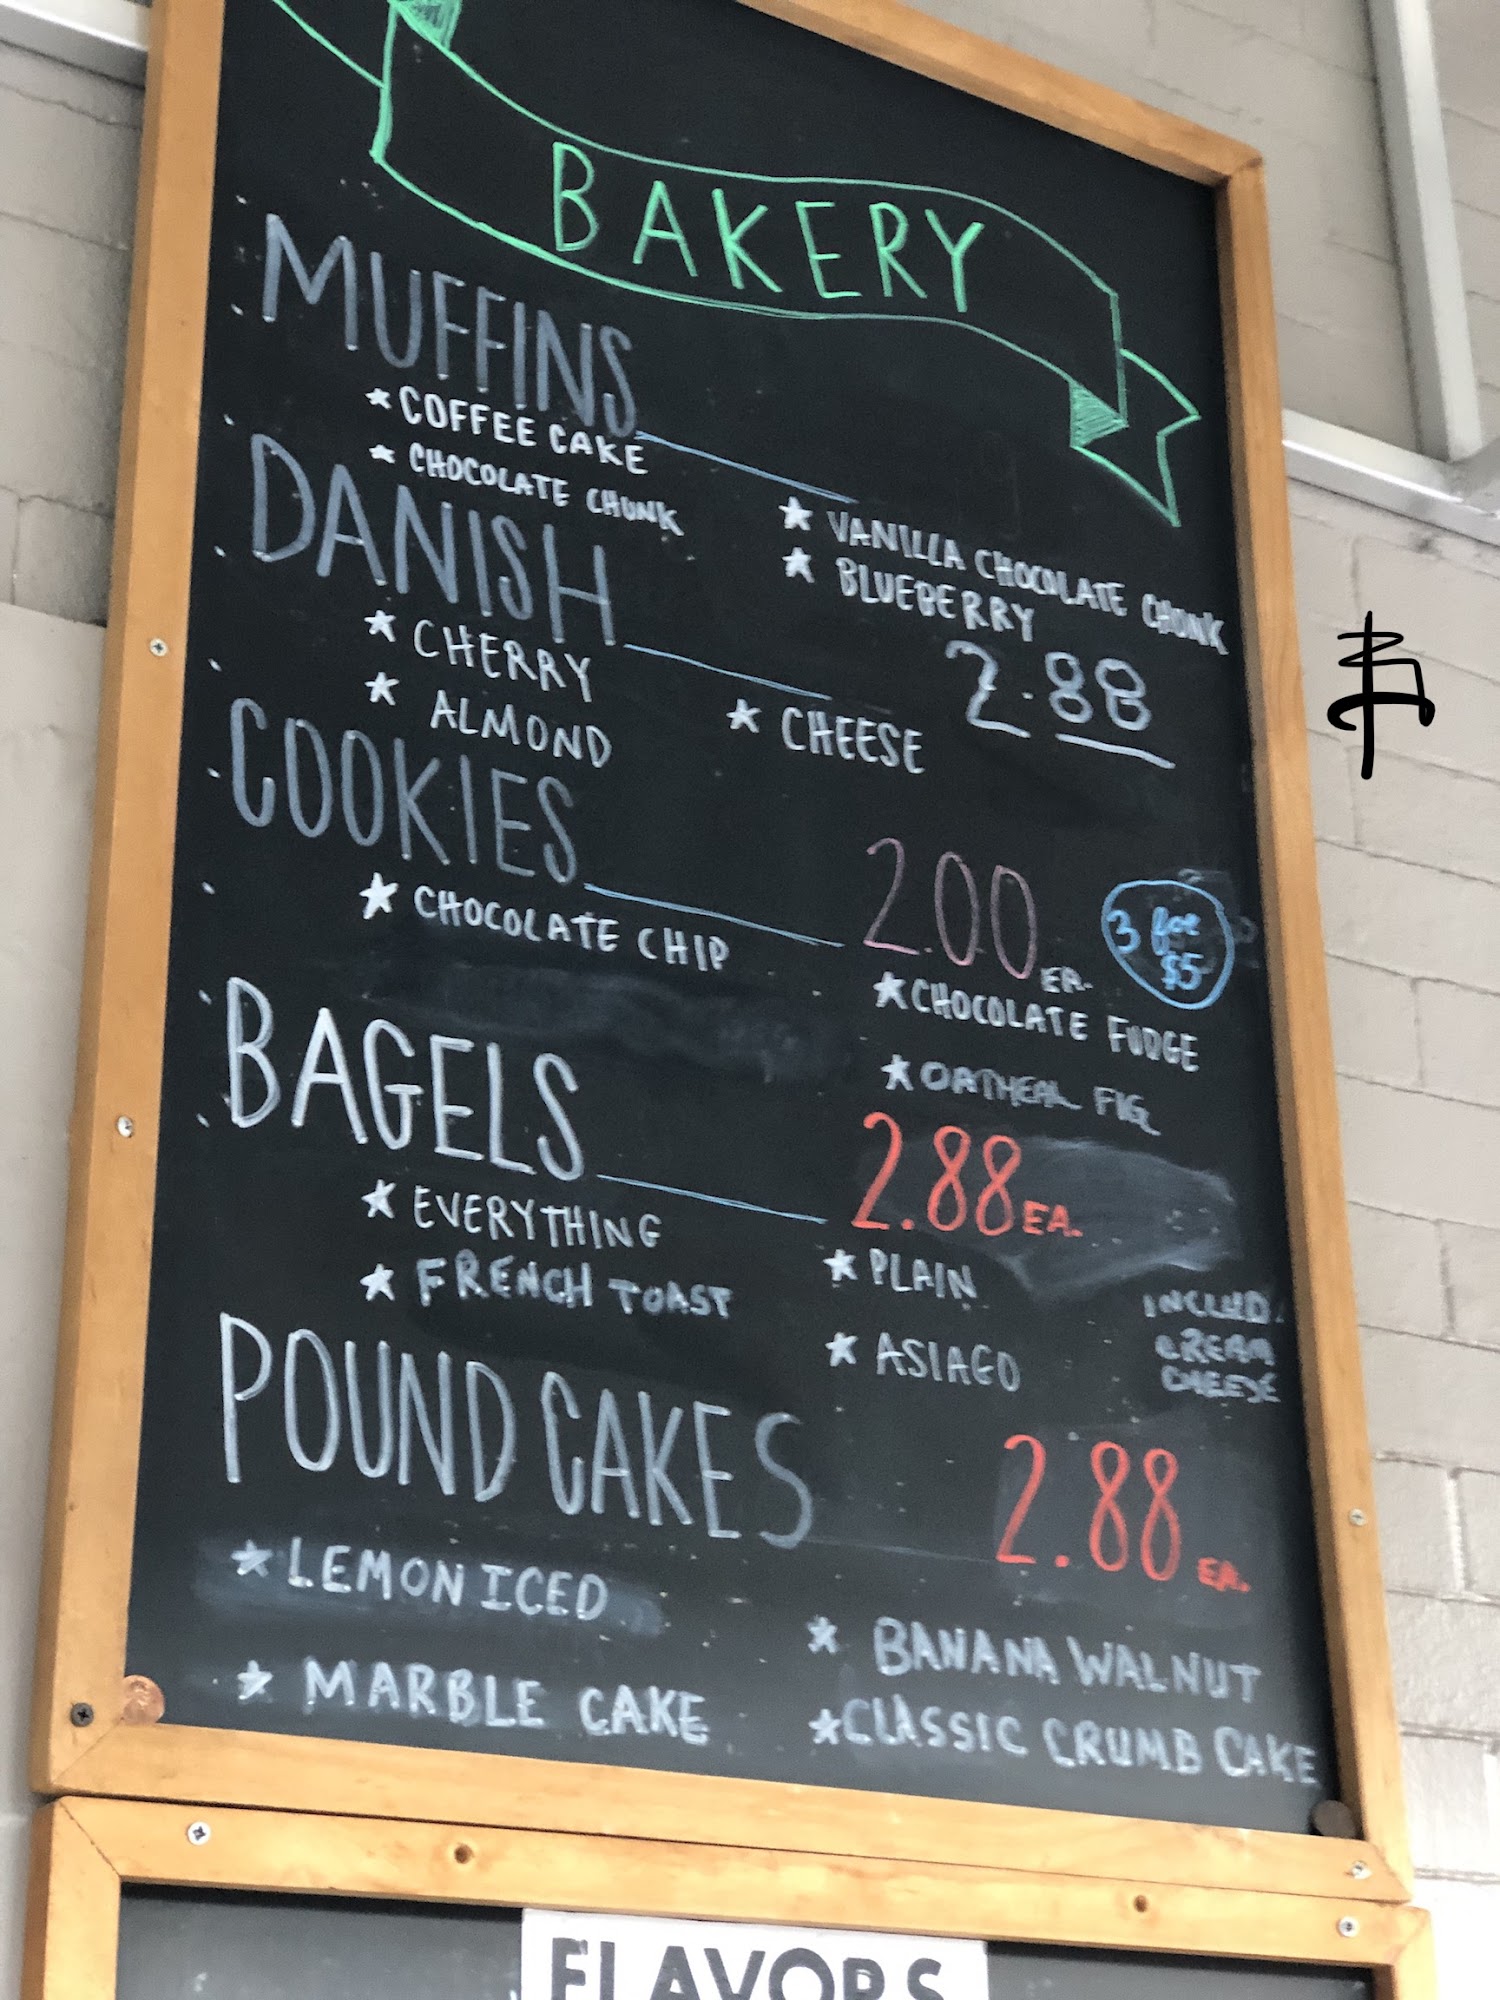 BAKERY
MUFFINS
★ COFFEE CAKE
★ CHOCOLATE CHUNK
★ VANILLA CHOCOLATE CHUNK
★ BLUEBERRY
DANISH
2.88
★ CHERRY
★ ALMOND
★ CHEESE
COOKIES
2.00 EA.
3 for
$5
★ CHOCOLATE CHIP
★ CHOCOLATE FUDGE
★ OATMEAL FIG
BAGELS
2.88 EA.
★ EVERYTHING
★ PLAIN
★ FRENCH TOAST
★ ASIAGO
INCLUD.
CREAM
CHEESE
POUND CAKES
2.88 EA.
★ LEMON ICED
★ BANANA WALNUT
★ MARBLE CAKE
★ CLASSIC CRUMB CAKE
FLAVORS